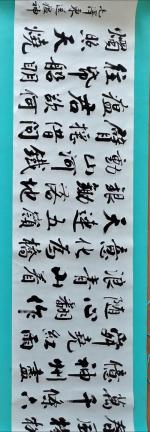 春風楊柳
萬千條六
億神州盡
舜堯紅雨
隨心翻作
浪青山着
意化為橋
天連五嶺
銀鋤落地
動三河鐵
臂搖借問
瘟君欲何
往紙船明
燭照天燒
毛澤東送瘟神